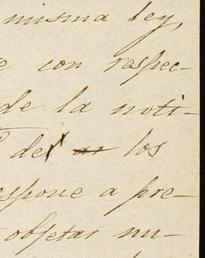 misma ley,
e con respec-
de la noti-
del los
spone a pre-
objetar nu-